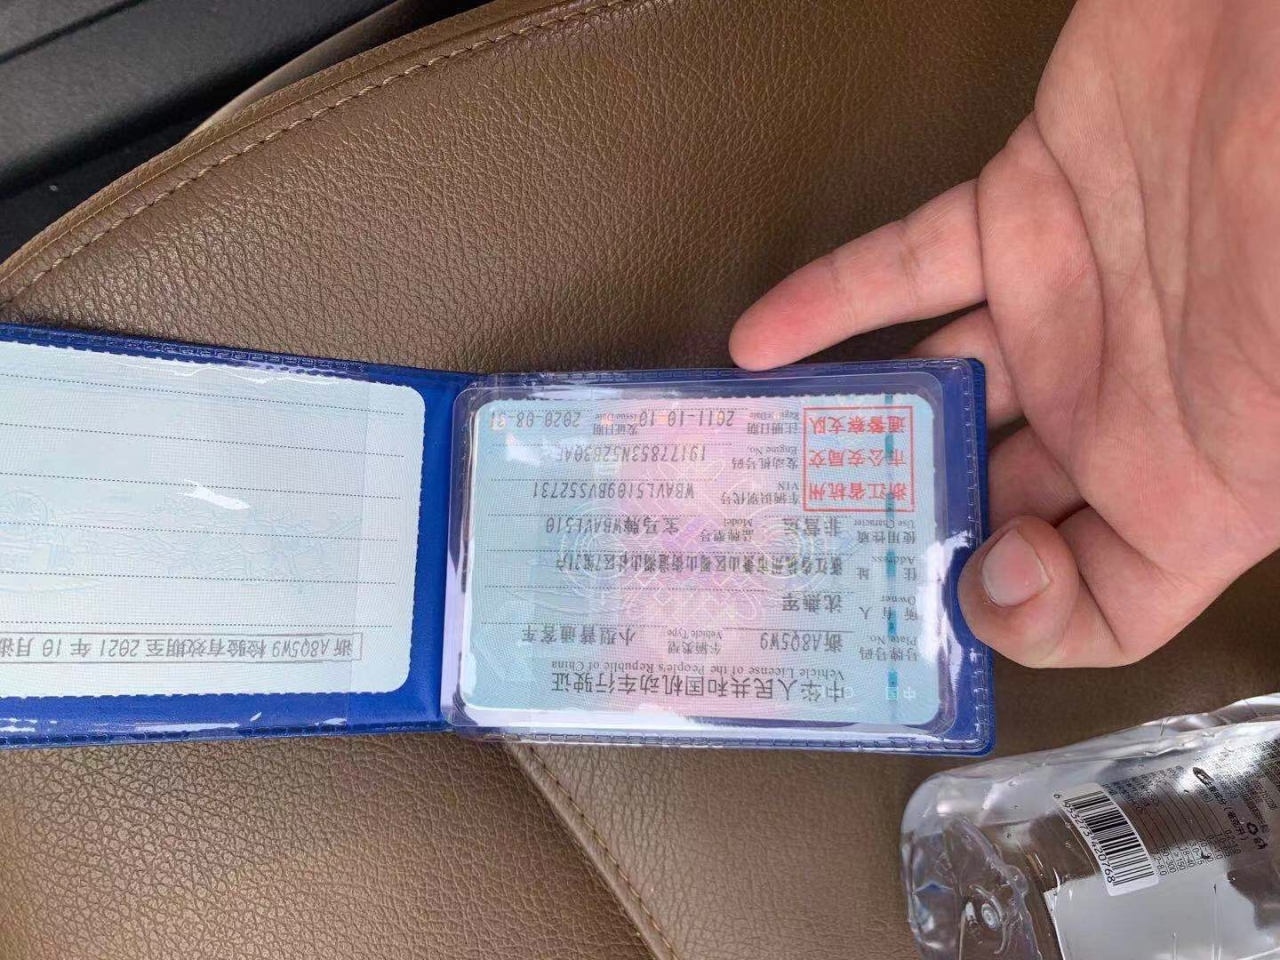 中华人民共和国机动车行驶证
Vehicle License of the People's Republic of China
号牌号码 浙A8Q5W9 车辆类型 小型普通客车
Plate No. Vehicle Type
所有人 沈燕军
Owner
住址 浙江省杭州市萧山区蜀山街道蜀山社区7幢71户
Address
使用性质 非营运 品牌型号 宝马牌WBAVL510
Use Character Model
浙江省杭州
市公安局交
通警察支队
车辆识别代号 WBAVL5109BVS52731
VIN
发动机号码 19177853N52B30AF
Engine No.
注册日期 2011-10-10 发证日期 2020-08-31
Register Date Issue Date
浙A8Q5W9 检验有效期至 2021年10月浙
6 953273 420768